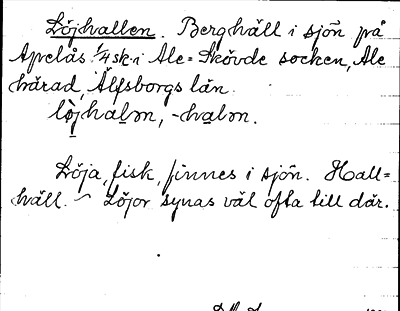 Löjhallen. Berghäll i sjön på
Apelås 1/4 sk. i Ale=Skövde socken, Ale
härad, Älfsborgs län.
löjhaln, -haln.
Löja, fisk, finnes i sjön. Hall=
häll. ~ Löjor synas väl ofta till där.